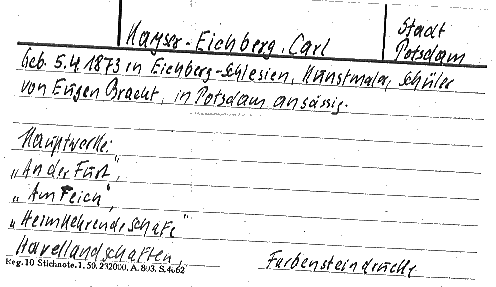 Kayser-Eichberg, Carl
Stadt
Potsdam
Geb. 5.4.1873 in Eichberg-Schlesien, Kunstmaler, Schüler
von Eugen Bracht, in Potsdam ansässig.
Hauptwerke:
„An der Furt",
„Am Teich",
„Heimkehrende Schafe"
Havellandschaften,
Farbensteindrucke
Reg. 10 Stichnote. 1. 59. 232000. A. 803. S. 4. 62